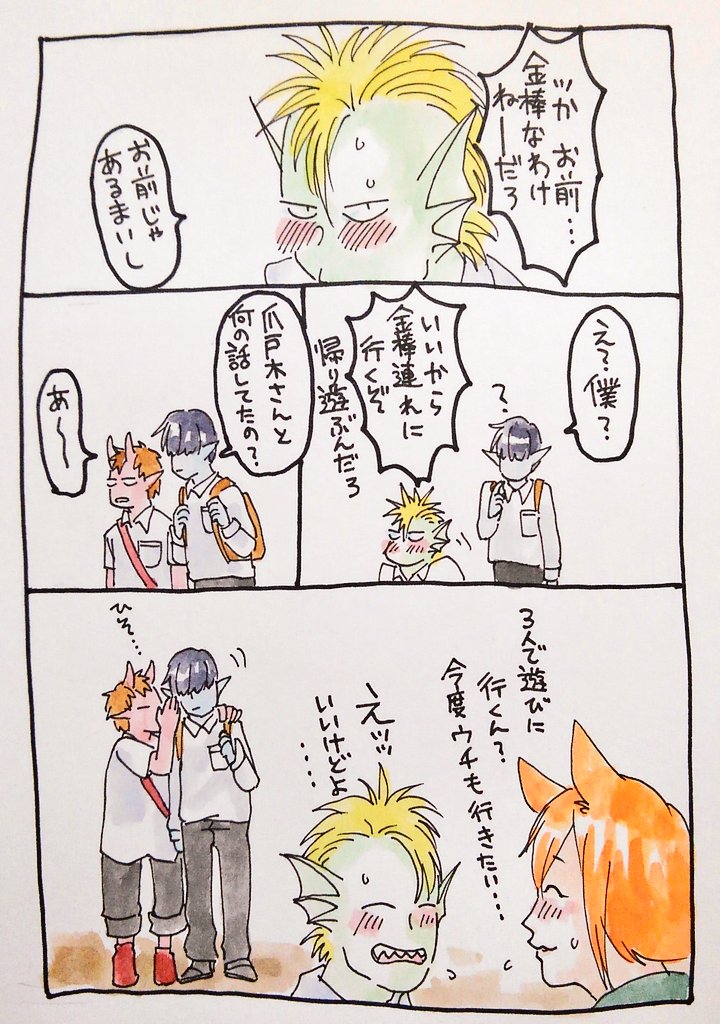 …つか お前…
金棒なわけ
ねーーだろ
お前じゃ
あるまいし
え?僕?
?
いいから
金棒連れに
行くぞ
帰り遊ぶんだろ
爪戸木さんと
何の話してたの?
あ〜〜
3人で遊びに
行くん?
今度ウチも行きたい…
えッッ
いいけどよ
....
ひそ…